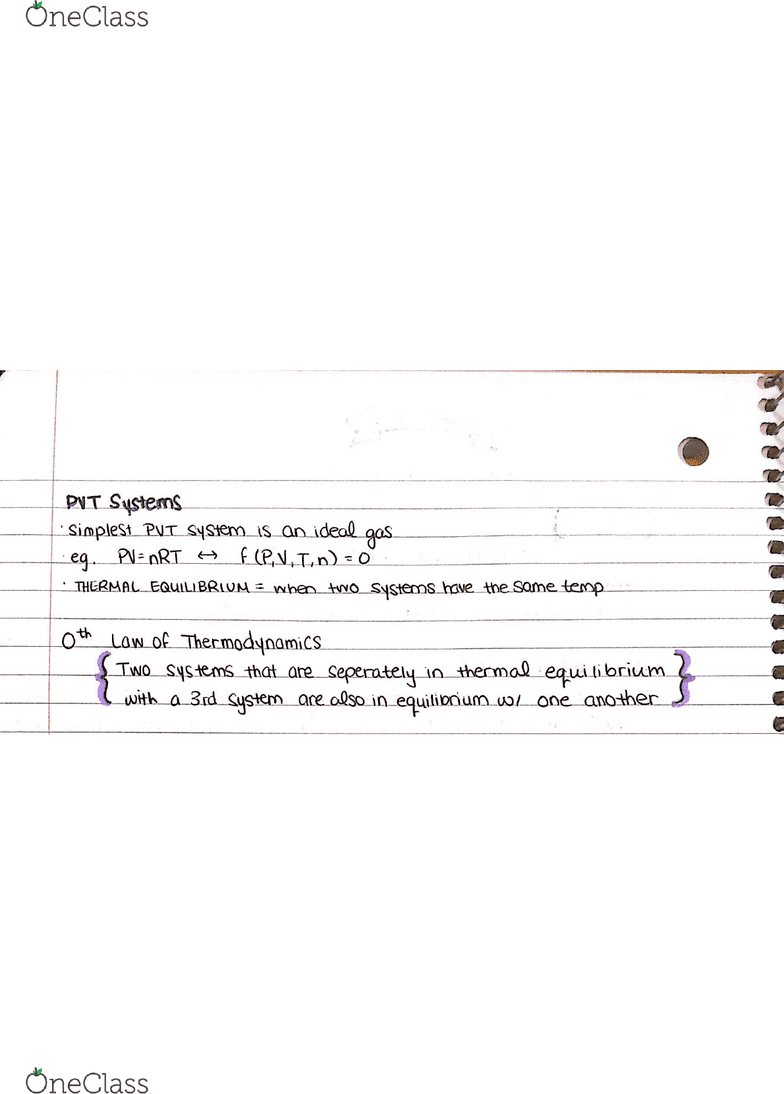 OneClass
PVT Systems
· Simplest PVT system is an ideal gas
· eg. PV=nRT ↔ f(P,V,T,n) = 0
· THERMAL EQUILIBRIUM = when two systems have the same temp
0th Law of Thermodynamics
{ Two systems that are seperately in thermal equilibrium
with a 3rd system are also in equilibrium w/ one another }
OneClass